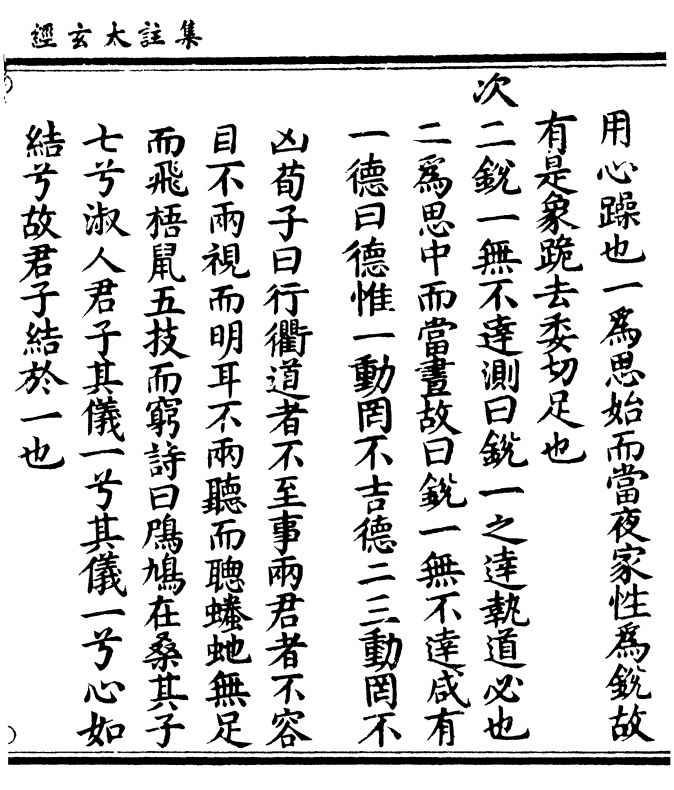 集註太玄經
用心躁也一爲思始而當夜家性爲銳故
有是象跪去委切足也
次二銳一無不達測曰銳一之達執道必也
二爲思中而當晝故曰銳一無不達咸有
一德曰德惟一動罔不吉德二三動罔不
凶荀子曰行衢道者不至事兩君者不容
目不兩視而明耳不兩聽而聰螣虵無足
而飛梧鼠五技而窮詩曰鳲鳩在桑其子
七兮淑人君子其儀一兮其儀一兮心如
結兮故君子結於一也